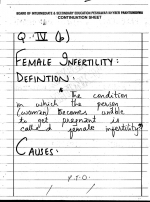 BOARD OF INTERMEDIATE & SECONDARY EDUCATION PESHAWAR KHYBER PAKHTUNKHWA
CONTINUATION SHEET
Q IV (b)
FEMALE INFERTILITY:
DEFINTION:
" The condition
in which the person
(woman) becomes unable
to get pregnant is
called female infertility"
CAUSES:
P.T.O.